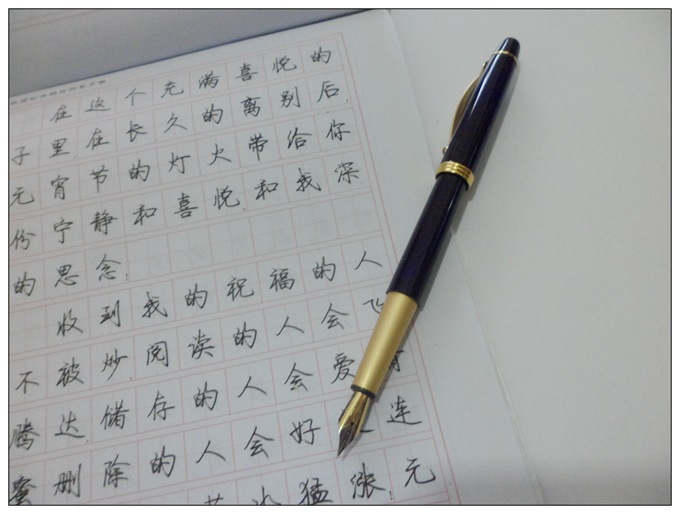 在这个充满喜悦的
子里,在长久的离别后,
元宵节的灯火带给你
份宁静和喜悦,和我深
的思念.
收到我的祝福的人
不被炒,阅读的人会飞
腾达,储存的人会爱
蜜,删除的人会好连
猛涨,元